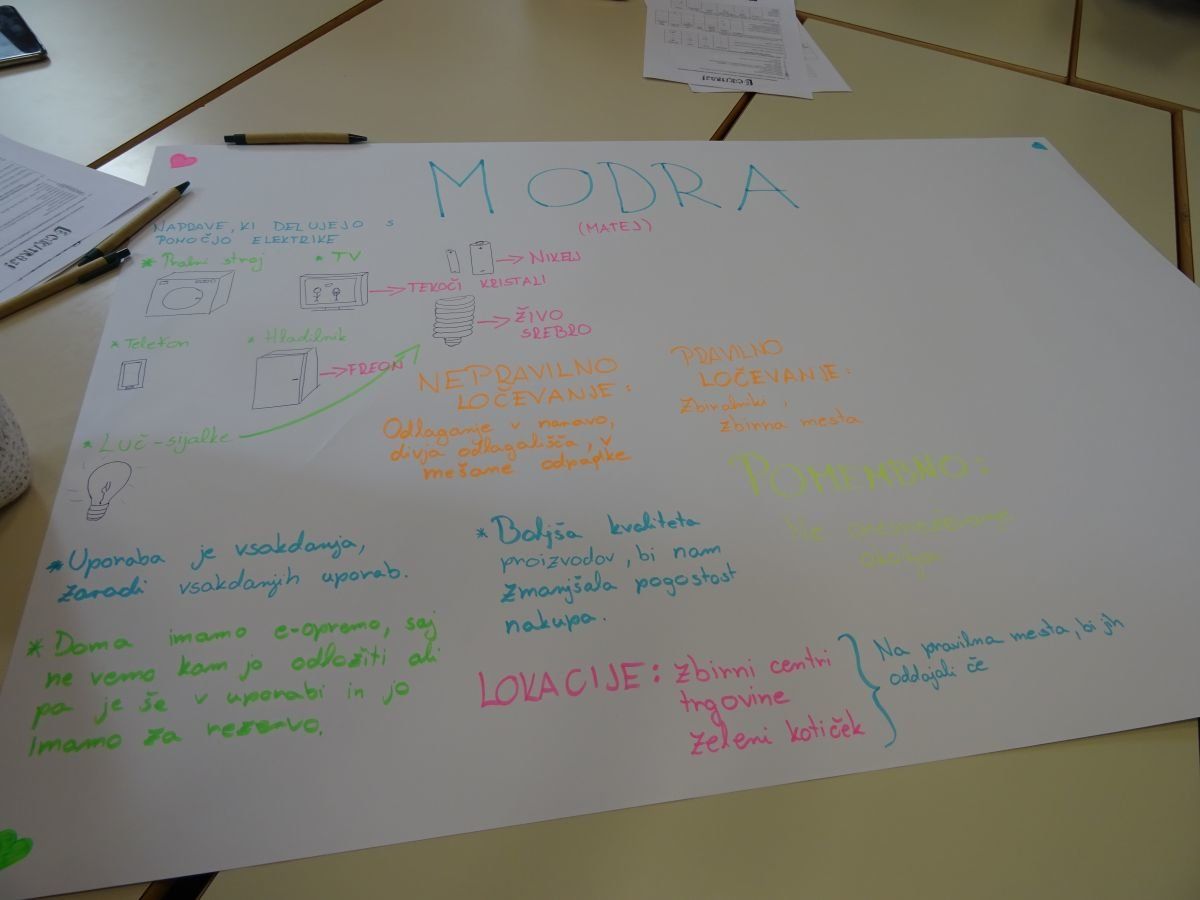 MODRA
(MATEJ)
NAPRAVE, KI DELUJEJO S
POMOČJO ELEKTRIKE
* Pralni stroj
* TV
→ NIKELJ
→ TEKOČI KRISTALI
→ ŽIVO
SREBRO
* Telefon
* Hladilnik
→ FREON
* Luč-sijalke
NEPRAVILNO
LOČEVANJE:
Odlaganje v naravo,
divja odlagališča, v
mešane odpadke
PRAVILNO
LOČEVANJE:
Zbiralniki,
zbirna mesta
POMEMBNO:
Ne onesnažujemo
okolja
* Uporaba je vsakdanja,
zaradi vsakdanjih uporab.
* Boljša kvaliteta
proizvodov, bi nam
zmanjšala pogostost
nakupa.
* Doma imamo e-opremo, saj
ne vemo kam jo odložiti ali
pa je še v uporabi in jo
imamo za rezervo.
LOKACIJE: zbirni centri
trgovine
zeleni kotiček
Na pravilna mesta, bi jih
oddajali če